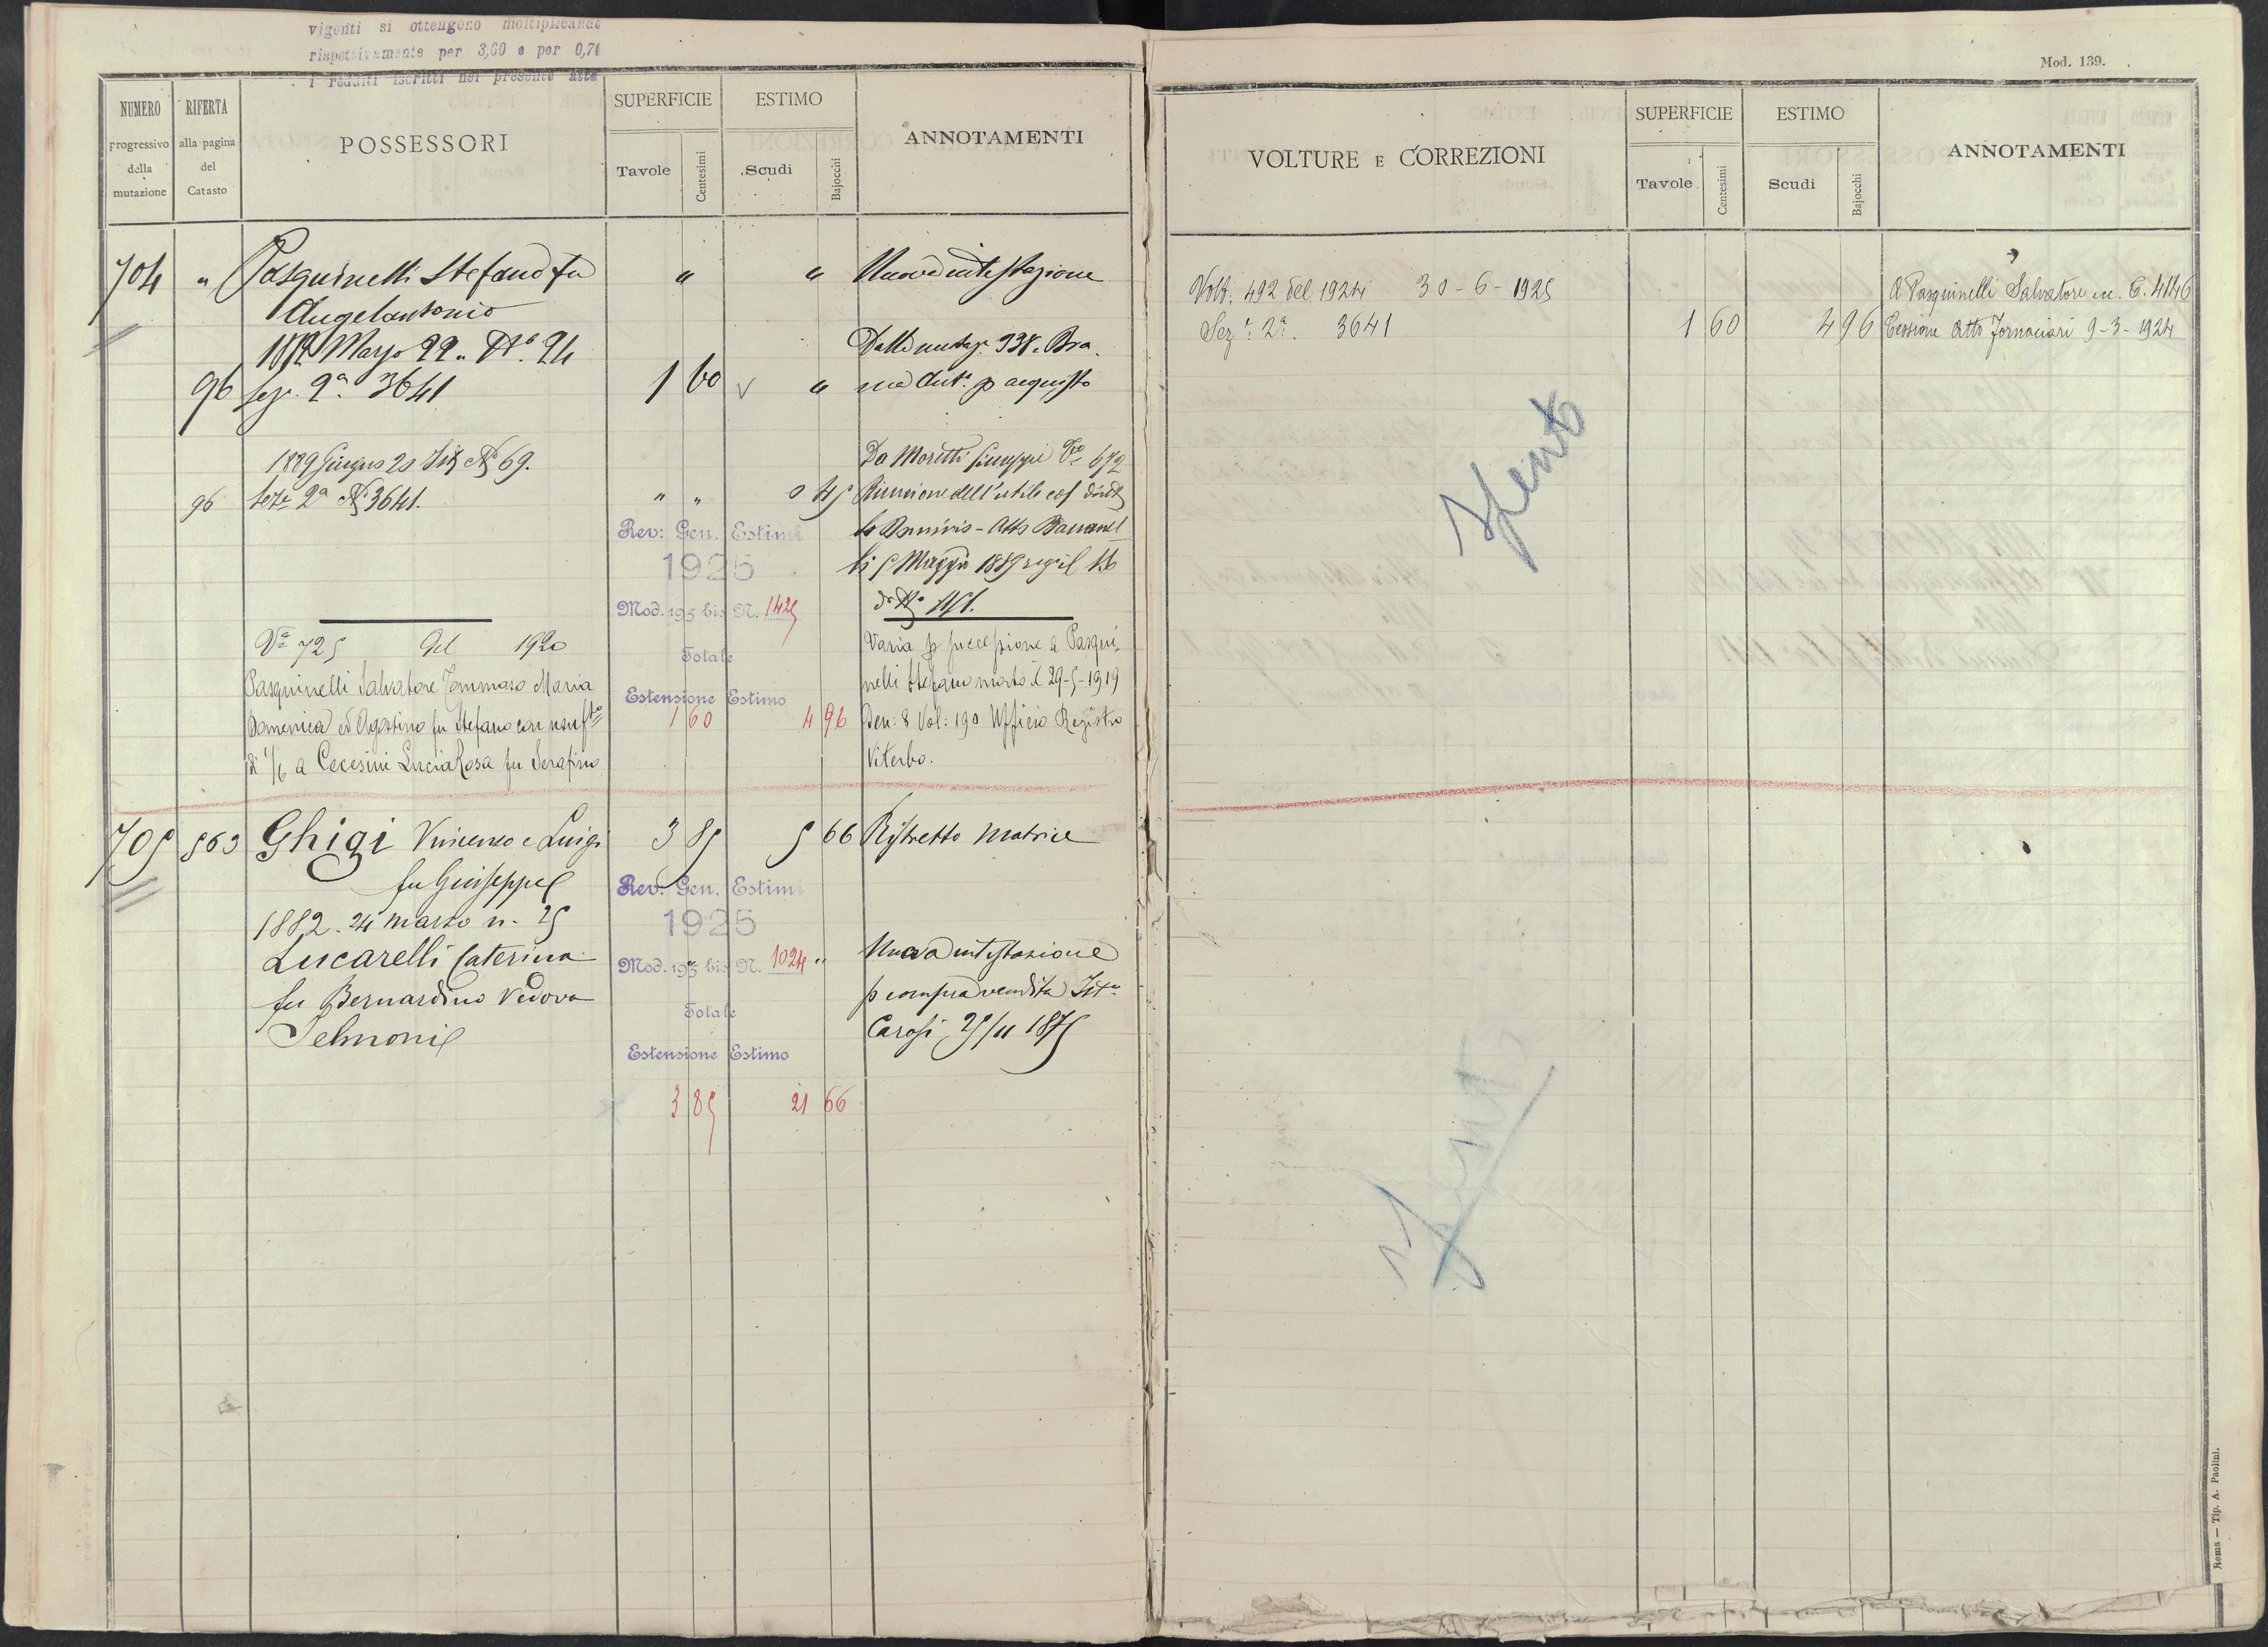 vigenti si ottengono moltiplicando
rispettivamente per 3,60 e per 0,70
i redditi iscritti nel presente atto
NUMERO
progressivo
della
mutazione
RIFERTA
alla pagina
del
Catasto
POSSESSORI
SUPERFICIE
Tavole
Centesimi
ESTIMO
Scudi
Bajocchi
ANNOTAMENTI
704 " Pasquinelli Stefano fu " " Nuova intestazione
Angelantonio
Marzo 22 N.° 24 Dalla mutaz.
96 Sez. 2a 3641 1 60 " p acquisto
1889 Giugno 20 N° 69. Da Moretti Giuseppe 672
96 Sez.e 2a N° 3641. " " 0 45 Riunione dell'utile col diretto
Rev: Gen. Estimi
1925
Mod. 195 bis N. 1425
5 Maggio 1889
Va 725 del 1920 Varia p successione a Pasqui-
Totale
Pasquinelli Salvatore Tommaso Maria nelli Stefano morto il 29-5-1919
Estensione Estimo
Domenica ed Agostino fu Stefano con usuf.to 1 60 4 96 Den: 8 Vol: 190 Ufficio Registro
di 1/6 a Cecesini Lucia Rosa fu Serafino Viterbo.
705 563 Ghigi Vincenzo e Luigi 3 85 5 66 Ristretto Matrice
fu Giuseppe
Rev. Gen. Estimi
1882. 24 marzo n. 25
1925
Lucarelli Caterina " Nuova intestazione
Mod. 195 bis N. 1024
fu Bernardino Vedova p compra vendita Ist.
Totale
Selmoni Carosi 25/11 1875
Estensione Estimo
3 85 21 66
Mod. 139.
VOLTURE E CORREZIONI
SUPERFICIE
Tavole
Centesimi
ESTIMO
Scudi
Bajocchi
ANNOTAMENTI
Volt. 492 del 1924 30-6-1925 A Pasquinelli Salvatore C. 4146
Sez.e 2a. 3641 1 60 4 96 Cessione Atto Fornaciari 9-3-1924
Spento
Spento
Roma — Tip. A. Paolini.